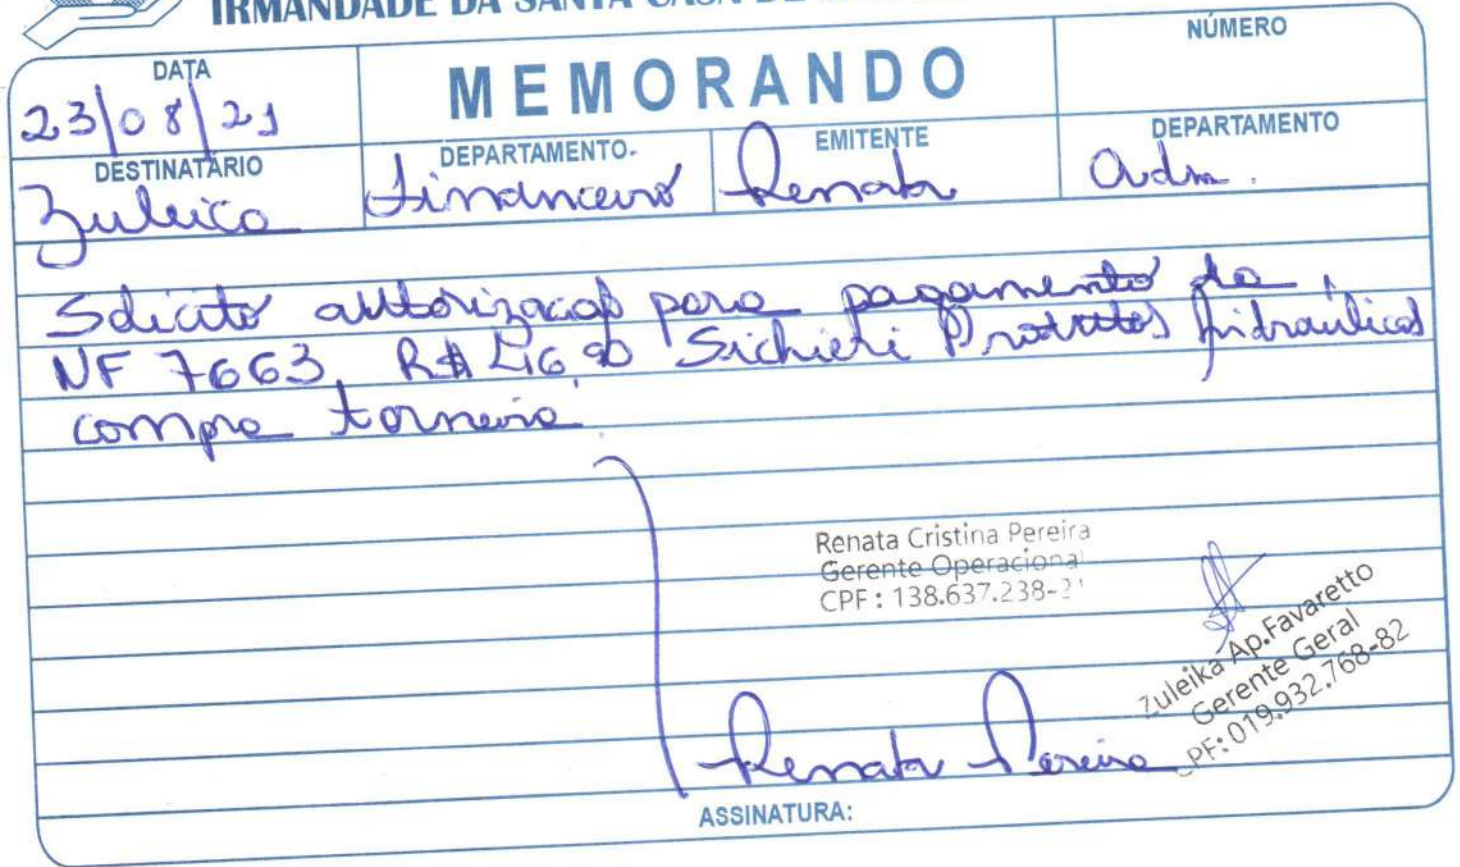 IRMANDADE DA SANTA CASA DE
DATA
23/08/21
MEMORANDO
NÚMERO
DESTINATÁRIO
Zuleica
DEPARTAMENTO.
Financeiro
EMITENTE
Renata
DEPARTAMENTO
Adm.
Solicito autorização para pagamento da
NF 7663, R$ Sichieri Produtos hidraulicos
compra torneira
Renata Cristina Pereira
Gerente Operacional
CPF: 138.637.238-21
Zuleika Ap.Favaretto
Gerente Geral
CPF: 019.932.768-82
Renata Pereira
ASSINATURA: